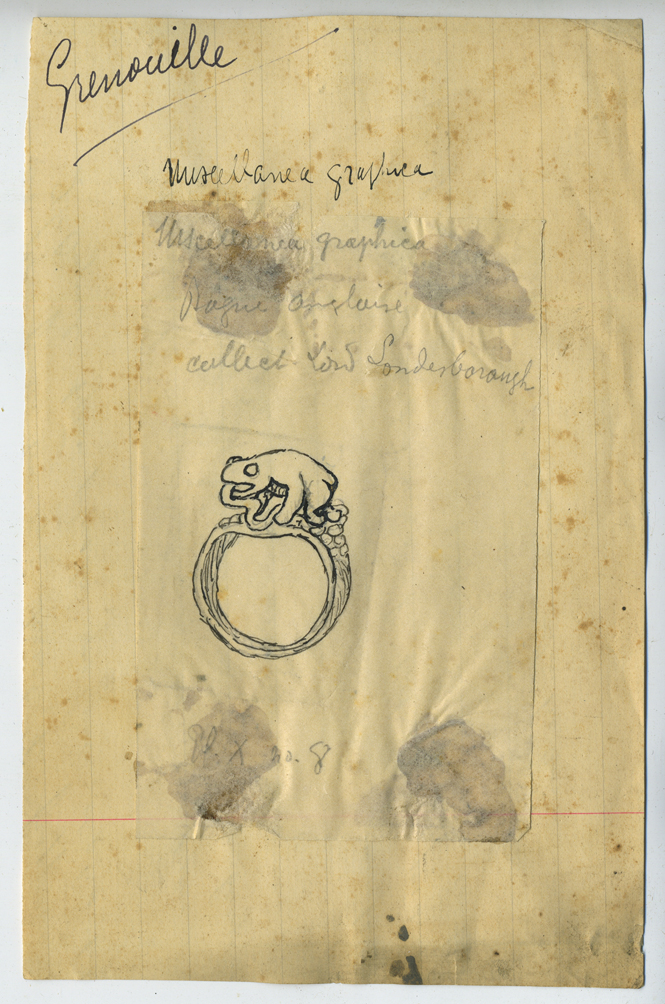 Grenouille
Miscellanea graphica
Miscellanea graphica
Bague Anglaise
collect Lord Londesborough
Pl. X no. 8